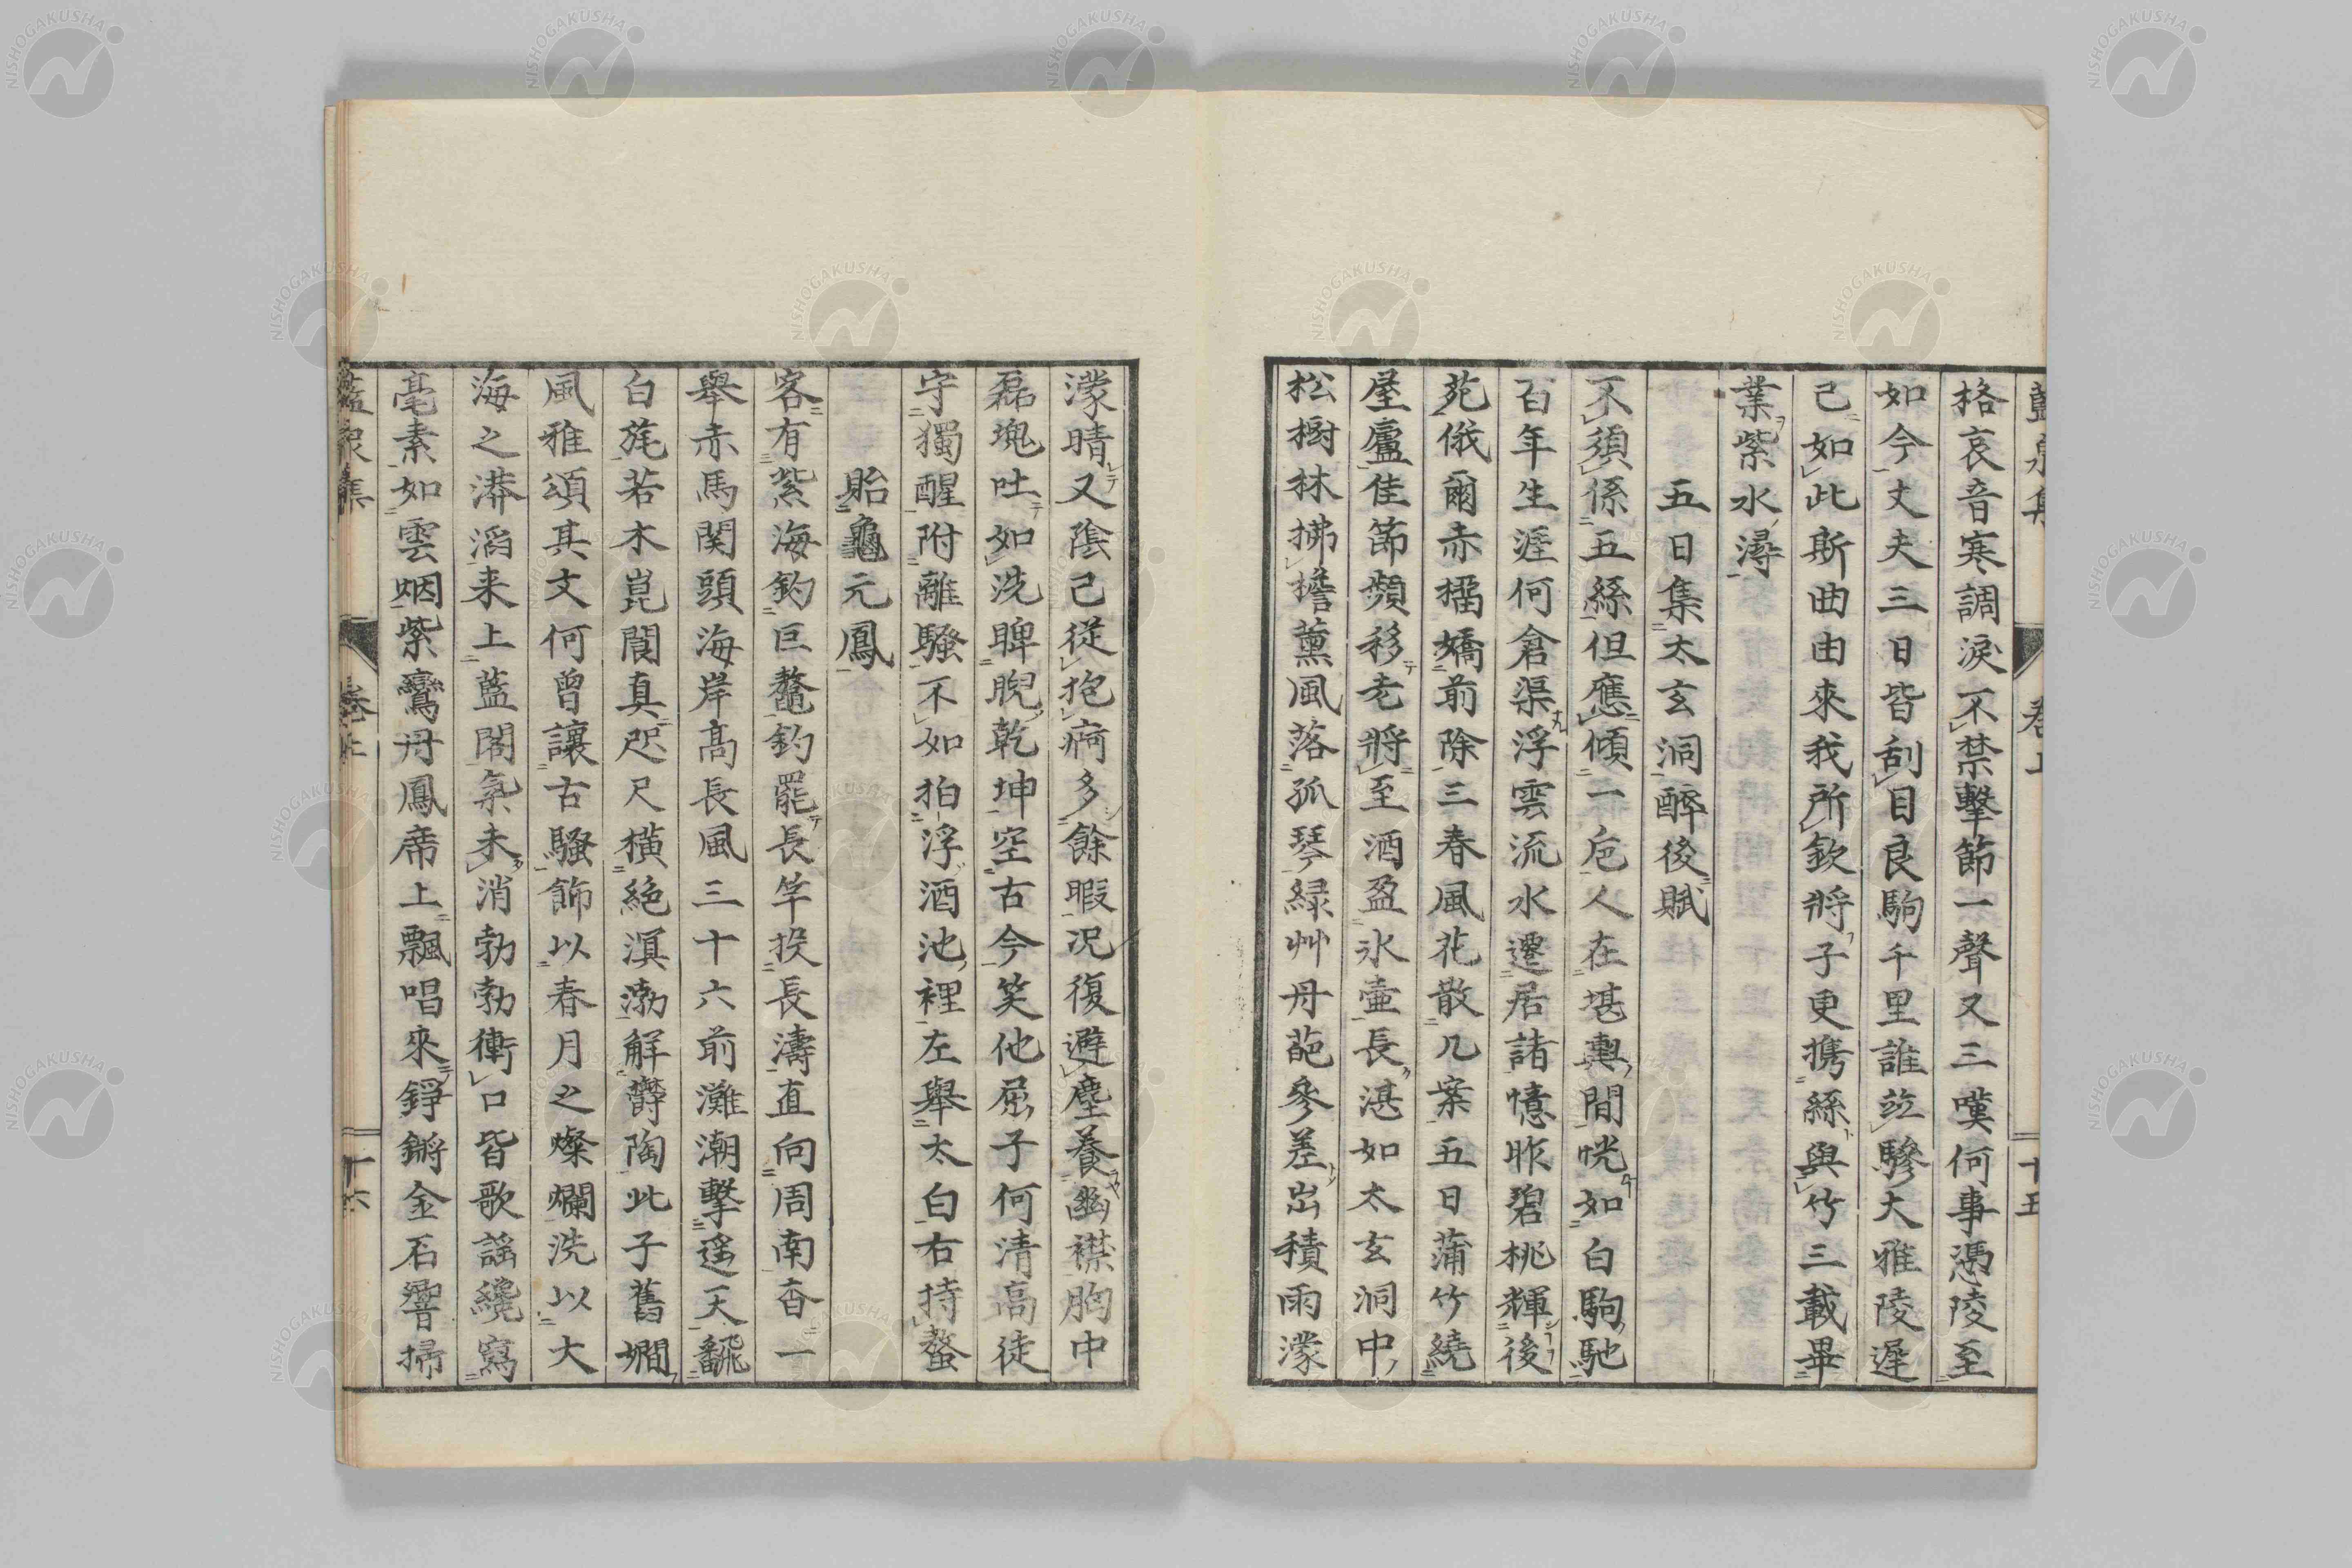 藍泉集 卷上 十五
格哀音寒調淚不禁擊節一聲又三嘆何事憑陵至
如今丈夫三日皆刮目良駒千里誰竝驂大雅陵遲
己如此斯曲由來我所欽將子更携絲與竹三載畢
業紫水潯
五日集太玄洞醉後賦
不須係五絲但應傾一卮人在堪輿間恍如白駒馳
百年生涯何倉渠浮雲流水遷居諸憶昨碧桃輝後
苑俄爾赤櫑嬌前除三春風花散几案五日蒲竹繞
屋廬佳節頻移老將至酒盈氷壷長湛如太玄洞中
松樹林拂檐薰風落孤琴緑艸丹葩參差出積雨濛
濛晴又陰己從抱痾多餘暇况復避塵養幽襟胸中
磊塊吐如洗睥睨乾坤空古今笑他屈子何清高徒
守獨醒附離騷不如拍浮酒池裡左舉太白右持螯
貽龜元鳳
客有紫海釣巨鼇釣罷長竿投長濤直向周南杳一
舉赤馬関頭海岸高長風三十六前灘潮擊遥天飜
白旄若木崑閬真咫尺横絶溟渤解欝陶此子舊嫺
風雅頌其文何曾讓古騷飾以春月之燦爛洗以大
海之漭滔来上藍閣氣未消勃勃衝口皆歌謡纔寫
毫素如雲烟紫鸞丹鳳席上飄唱來錚鏘金石響掃
藍泉集 卷上 十六